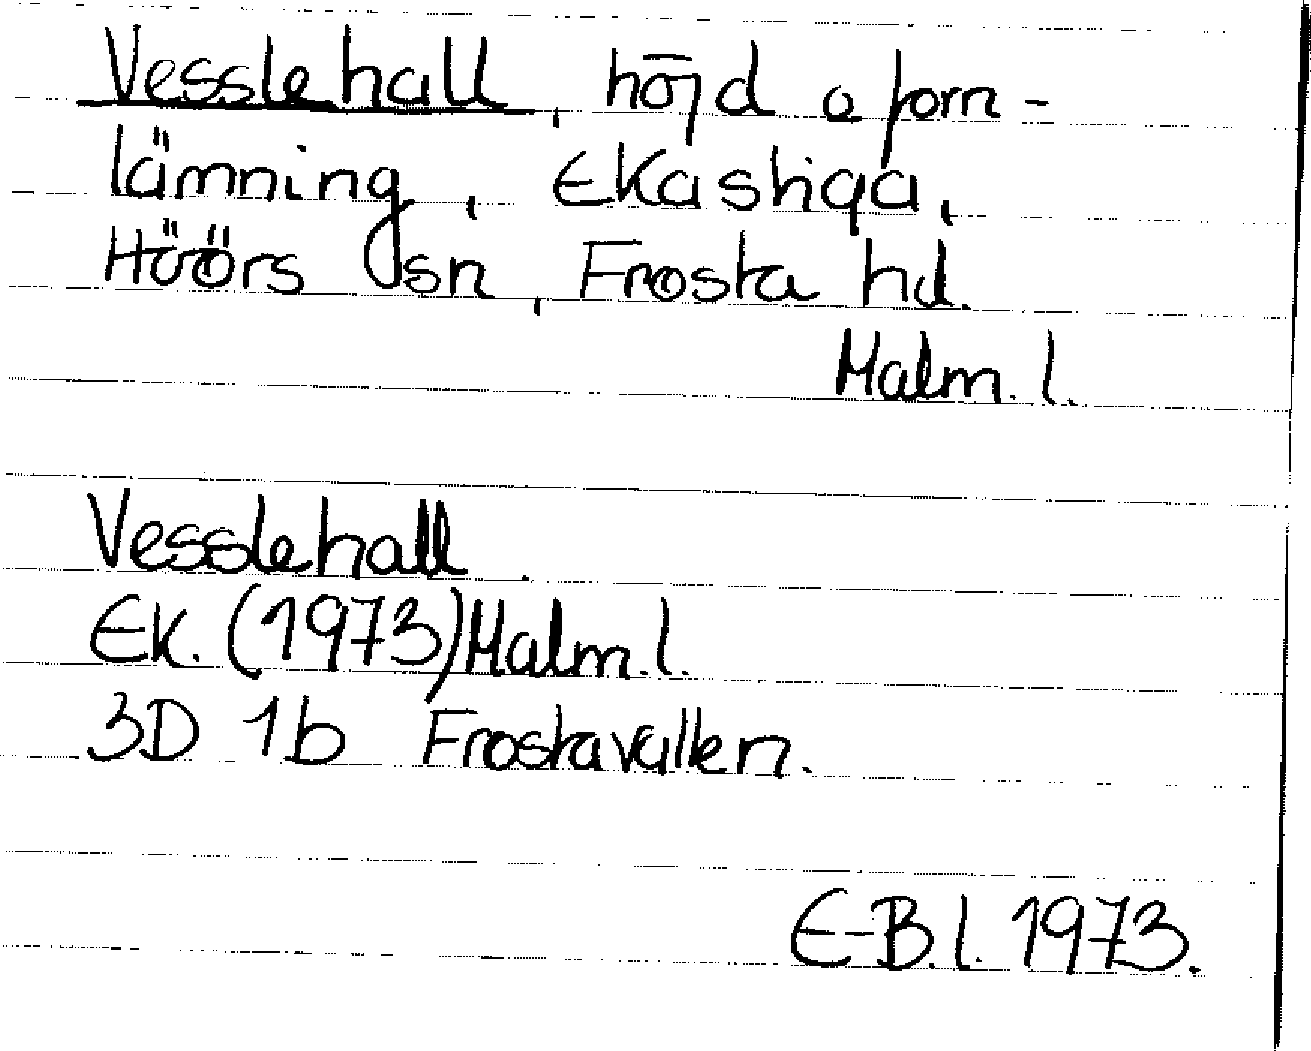 Vesslehall, höjd o forn-
lämning, Ekastiga,
Höörs sn, Frosta hd.
Malm. l.
Vesslehall
Ek. (1973) Malm. l.
3D 1b Frostavallen.
E-B. l. 1973.